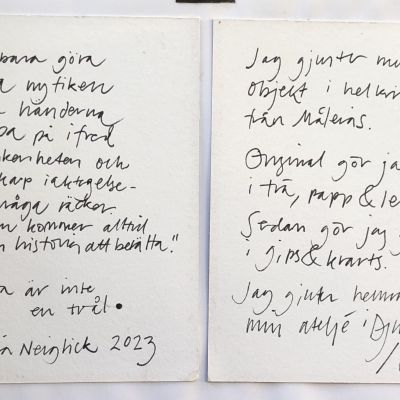 bara göra
nytiken
händerna
på ifred
och
skarp iaktagelse-
måga räcker.
kommer alltid
historia att berätta."
är inte
en tvål.
Neiglick 2023
Jag gjuter
objekt i
från Målerås.
Original gör
i trä, papp & le
Sedan gör jag
i gips & kvarts.
Jag gjuter hemm
min ateljé i Dju